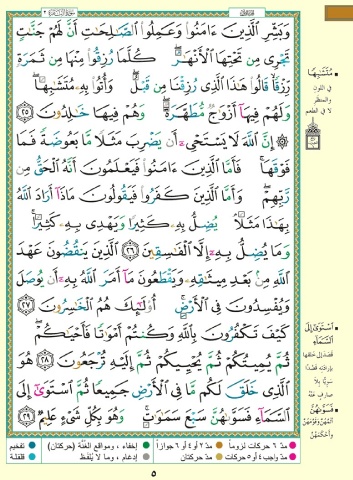 وَبَشِّرِ الَّذِينَ ءَامَنُوا وَعَمِلُوا الصَّـٰلِحَـٰتِ أَنَّ لَهُمْ جَنَّـٰتٍ
تَجْرِى مِن تَحْتِهَا الْأَنْهَـٰرُ ۖ كُلَّمَا رُزِقُوا مِنْهَا مِن ثَمَرَةٍ
رِّزْقًا ۙ قَالُوا هَـٰذَا الَّذِى رُزِقْنَا مِن قَبْلُ ۖ وَأُتُوا بِهِۦ مُتَشَـٰبِهًا ۖ
وَلَهُمْ فِيهَآ أَزْوَٰجٌ مُّطَهَّرَةٌ ۖ وَهُمْ فِيهَا خَـٰلِدُونَ ﴿٢٥﴾
۞ إِنَّ اللَّهَ لَا يَسْتَحْىِۦٓ أَن يَضْرِبَ مَثَلًا مَّا بَعُوضَةً فَمَا
فَوْقَهَا ۚ فَأَمَّا الَّذِينَ ءَامَنُوا فَيَعْلَمُونَ أَنَّهُ الْحَقُّ مِن
رَّبِّهِمْ ۖ وَأَمَّا الَّذِينَ كَفَرُوا فَيَقُولُونَ مَاذَآ أَرَادَ اللَّهُ
بِهَـٰذَا مَثَلًا ۘ يُضِلُّ بِهِۦ كَثِيرًا وَيَهْدِى بِهِۦ كَثِيرًا ۚ
وَمَا يُضِلُّ بِهِۦٓ إِلَّا الْفَـٰسِقِينَ ﴿٢٦﴾ الَّذِينَ يَنقُضُونَ عَهْدَ
اللَّهِ مِن بَعْدِ مِيثَـٰقِهِۦ وَيَقْطَعُونَ مَآ أَمَرَ اللَّهُ بِهِۦٓ أَن يُوصَلَ
وَيُفْسِدُونَ فِى الْأَرْضِ ۚ أُولَـٰٓئِكَ هُمُ الْخَـٰسِرُونَ ﴿٢٧﴾
كَيْفَ تَكْفُرُونَ بِاللَّهِ وَكُنتُمْ أَمْوَٰتًا فَأَحْيَـٰكُمْ ۖ
ثُمَّ يُمِيتُكُمْ ثُمَّ يُحْيِيكُمْ ثُمَّ إِلَيْهِ تُرْجَعُونَ ﴿٢٨﴾ هُوَ
الَّذِى خَلَقَ لَكُم مَّا فِى الْأَرْضِ جَمِيعًا ثُمَّ اسْتَوَىٰٓ إِلَى
السَّمَآءِ فَسَوَّىٰهُنَّ سَبْعَ سَمَـٰوَٰتٍ ۚ وَهُوَ بِكُلِّ شَىْءٍ عَلِيمٌ ﴿٢٩﴾
مُتَشَـٰبِهًا
فى اللون
والمنظر
لا فى الطعم
اسْتَوَىٰ إِلَى
السَّمَآءِ
قصد إلى خلقها
بإرادته قصدا
سويا بلا
صارف عنه
فَسَوَّىٰهُنَّ
أتمهن وقومهن
وأحكمهن
مدّ ٦ حركات لزوماً
مدّ ٢ أو ٤ أو ٦ جوازاً
إخفاء، ومواقع الغُنَّة (حركتان)
تفخيم
مدّ واجب ٤ أو ٥ حركات
مدّ حركتان
إدغام، وما لا يُلفَظ
قلقلة
٥